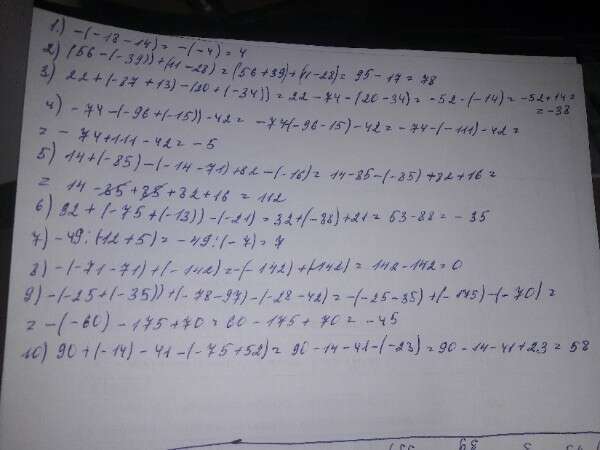 1.) -(-18-14) = -(-4) = 4
2) (56-(-39))+(11-28) = (56+39)+(11-28) = 95-17 = 78
3) 22+(-87+13)-(20+(-34)) = 22-74-(20-34) = -52-(-14) = -52+14 =
= -38
4) -74-(-96+(-15))-42 = -74-(-96-15)-42 = -74-(-111)-42 =
= -74+111-42 = -5
5) 14+(-85)-(-14-71)+82-(-16) = 14-85-(-85)+82+16 =
= 14-85+85+82+16 = 112
6) 32+(-75+(-13))-(-21) = 32+(-88)+21 = 53-88 = -35
7) -49:(-12+5) = -49:(-7) = 7
8) -(-71-71)+(-142) = -(-142)+(-142) = 142-142 = 0
9) -(-25+(-35))+(-78-97)-(-28-42) = -(-25-35)+(-175)-(-70) =
= -(-60)-175+70 = 60-175+70 = -45
10) 90+(-14)-41-(-75+52) = 90-14-41-(-23) = 90-14-41+23 = 58